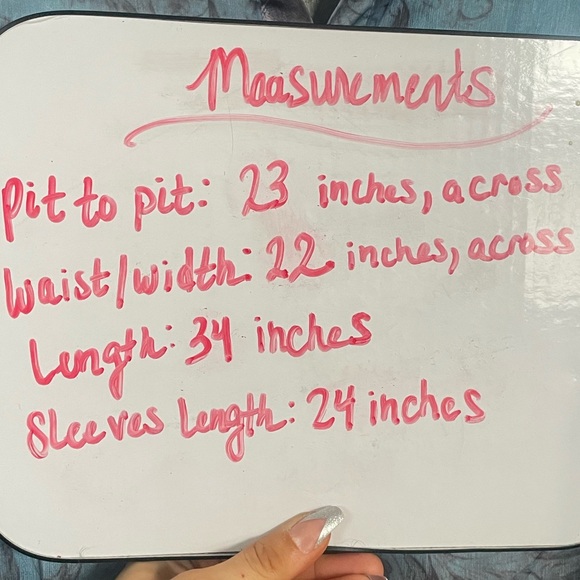 Measurements
Pit to pit: 23 inches, across
Waist/width: 22 inches, across
Length: 34 inches
Sleeves Length: 24 inches